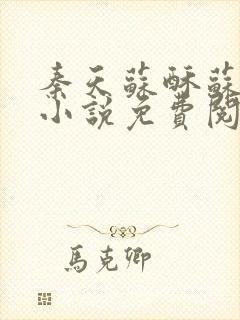 秦天蘇酥蘇
小說免費閱
馬克卿